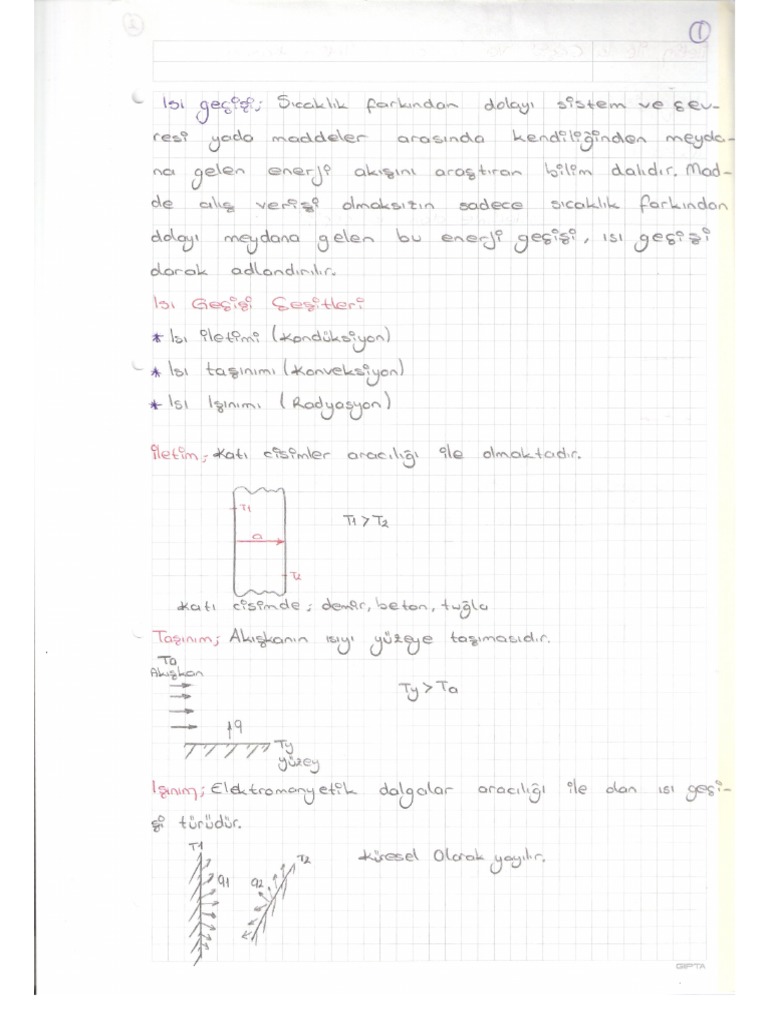 1
Isı geçişi; Sıcaklık farkından dolayı sistem ve çev-
resi yada maddeler arasında kendiliğinden meyda-
na gelen enerji akışını araştıran bilim dalıdır. Mad-
de alış verişi olmaksızın sadece sıcaklık farkından
dolayı meydana gelen bu enerji geçişi, ısı geçişi
olarak adlandırılır.
Isı Geçişi Çeşitleri
* Isı iletimi (Kondüksiyon)
* Isı taşınımı (Konveksiyon)
* Isı Işınımı (Radyasyon)
iletim; Katı cisimler aracılığı ile olmaktadır.
T1
T1 > T2
Q
T2
Katı cisimde; demir, beton, tuğla
Taşınım; Akışkanın ısıyı yüzeye taşımasıdır.
Ta
Akışkan
Ty > Ta
q
Ty
yüzey
Işınım; Elektromanyetik dalgalar aracılığı ile olan ısı geçi-
şi türüdür.
T1
T2
Küresel Olarak yayılır.
q1
q2
GIPTA